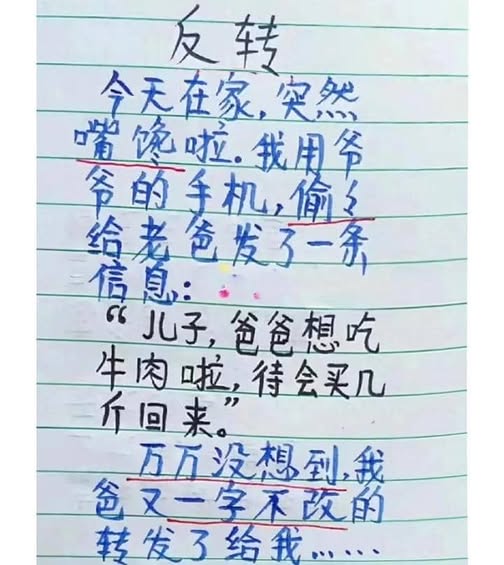 反转
今天在家,突然
嘴馋啦.我用爷
爷的手机,偷々
给老爸发了一条
信息:
“儿子,爸爸想吃
牛肉啦,待会买几
斤回来。”
万万没想到,我
爸又一字不改的
转发了给我……